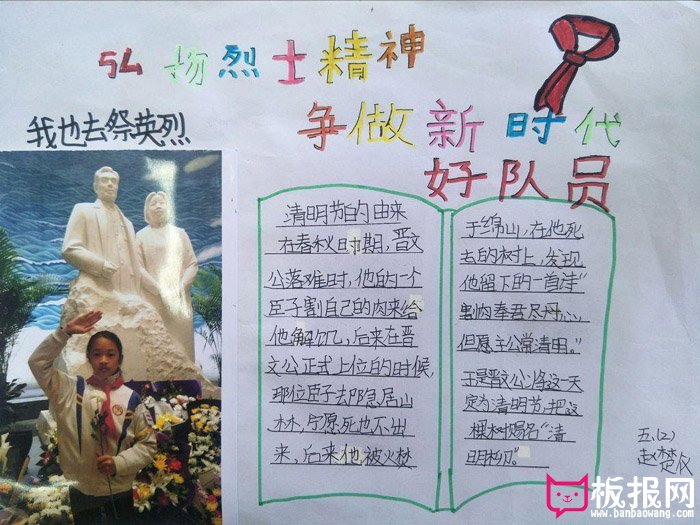 弘扬烈士精神
争做新时代
好队员
我也去祭英烈
清明节的由来
在春秋时期，晋文
公落难时，他的一个
臣子割自己的肉来给
他解饥，后来在晋
文公正式上位的时候，
那位臣子却隐居山
林，宁愿死也不出
来，后来他被火焚
于绵山，在他死
去的树上，发现
他留下的一首诗“
割肉奉君尽丹心，
但愿主公常清明。”
于是晋文公将这一天
定为清明节，把这
棵树赐名“清
明柳”。
五、(2)
赵楚仪
板报网
www.banbaowang.com